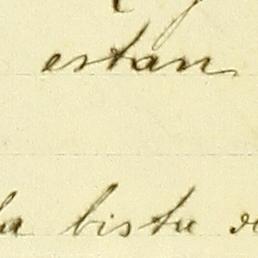 estan
la bistu